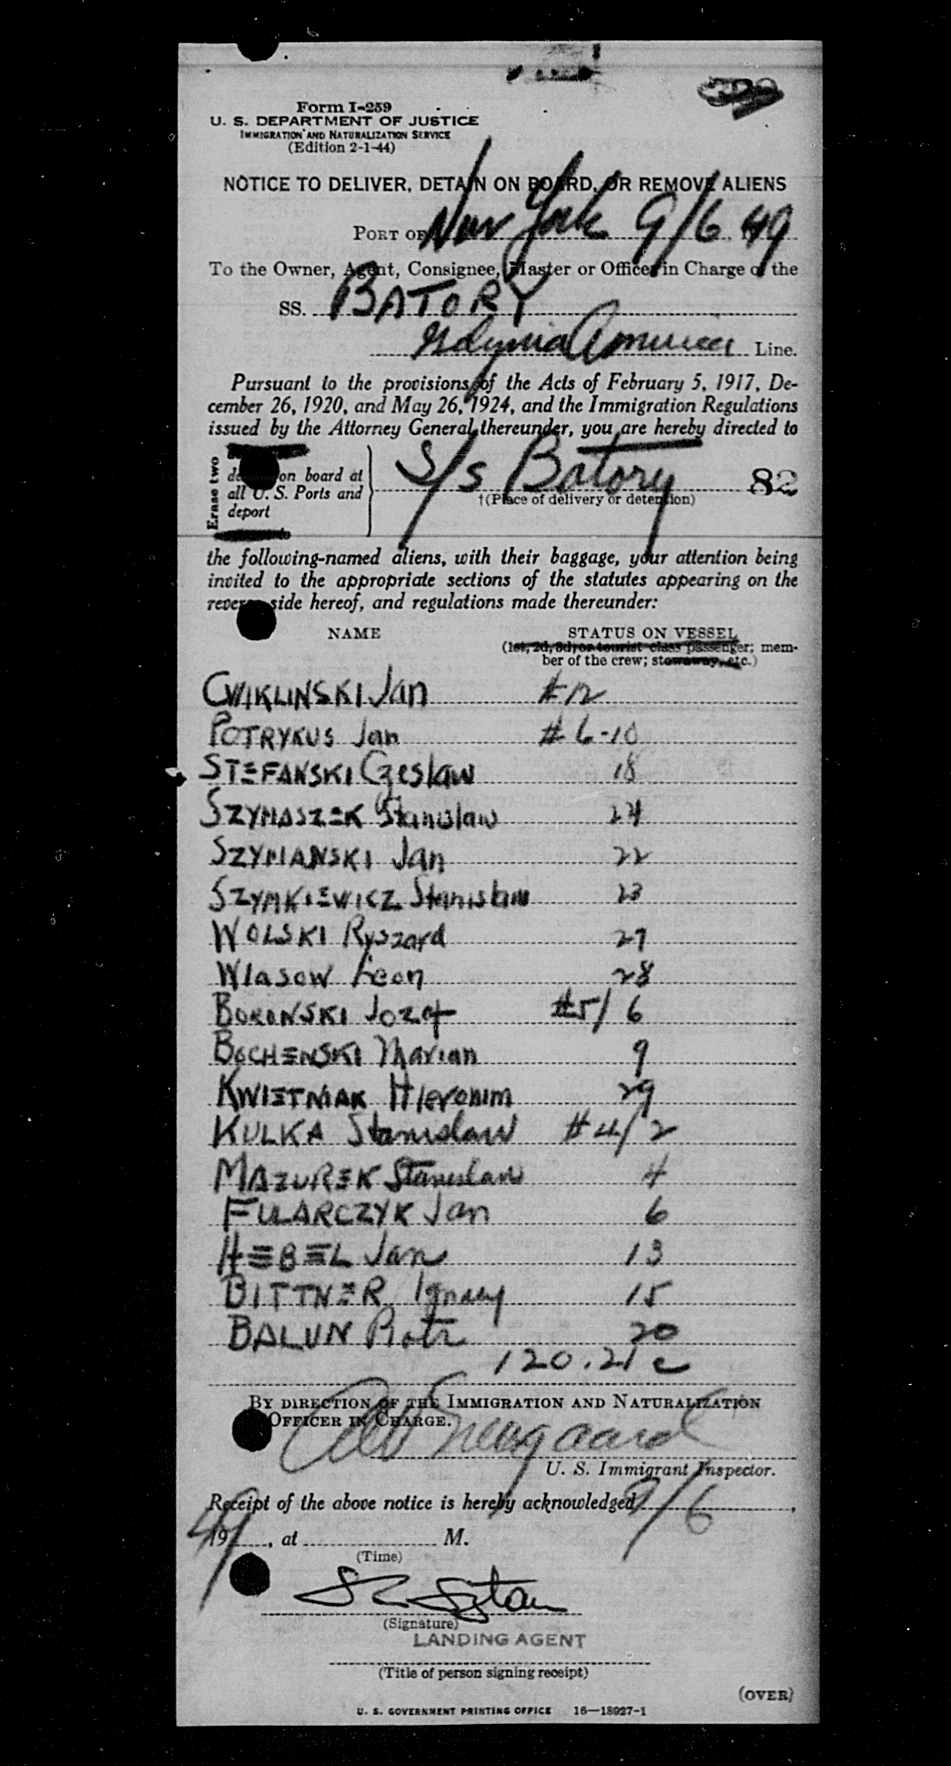 Form I-259
U. S. DEPARTMENT OF JUSTICE
IMMIGRATION AND NATURALIZATION SERVICE
(Edition 2-1-44)
NOTICE TO DELIVER, DETAIN ON BOARD, OR REMOVE ALIENS
PORT OF New York 9/6, 49
To the Owner, Agent, Consignee, Master or Officer in Charge of the
SS. BATORY
Gdynia America Line.
Pursuant to the provisions of the Acts of February 5, 1917, De-
cember 26, 1920, and May 26, 1924, and the Immigration Regulations
issued by the Attorney General thereunder, you are hereby directed to
Erase two
on board at
all U. S. Ports and
deport
S/S Batory 82
†(Place of delivery or detention)
the following-named aliens, with their baggage, your attention being
invited to the appropriate sections of the statutes appearing on the
reverse side hereof, and regulations made thereunder:
NAME STATUS ON VESSEL
(1st, 2d, 3d, or tourist class passenger; mem-
ber of the crew; stowaway, etc.)
CWIKLINSKI Jan #12
POTRYKUS Jan #6-10
STEFANSKI Czeslaw 18
SZYMASZEK Stanislaw 24
SZYMANSKI Jan 22
SZYMKIEWICZ Stanislaw 23
WOLSKI Ryszard 27
WLASOW Leon 28
BORONSKI Jozef #5/ 6
BOCHENSKI Marian 9
KWIETNIAK Hieronim 29
KULKA Stanislaw #4/2
MAZUREK Stanislaw 4
FULARCZYK Jan 6
HEBEL Jan 13
BITTNER Ignacy 15
BALUN Piotr 20
120.21 c
BY DIRECTION OF THE IMMIGRATION AND NATURALIZATION
OFFICER IN CHARGE.
U. S. Immigrant Inspector.
Receipt of the above notice is hereby acknowledged 9/6,
1949, at M.
(Time)
(Signature)
LANDING AGENT
(Title of person signing receipt)
(OVER)
U. S. GOVERNMENT PRINTING OFFICE 16—18927-1